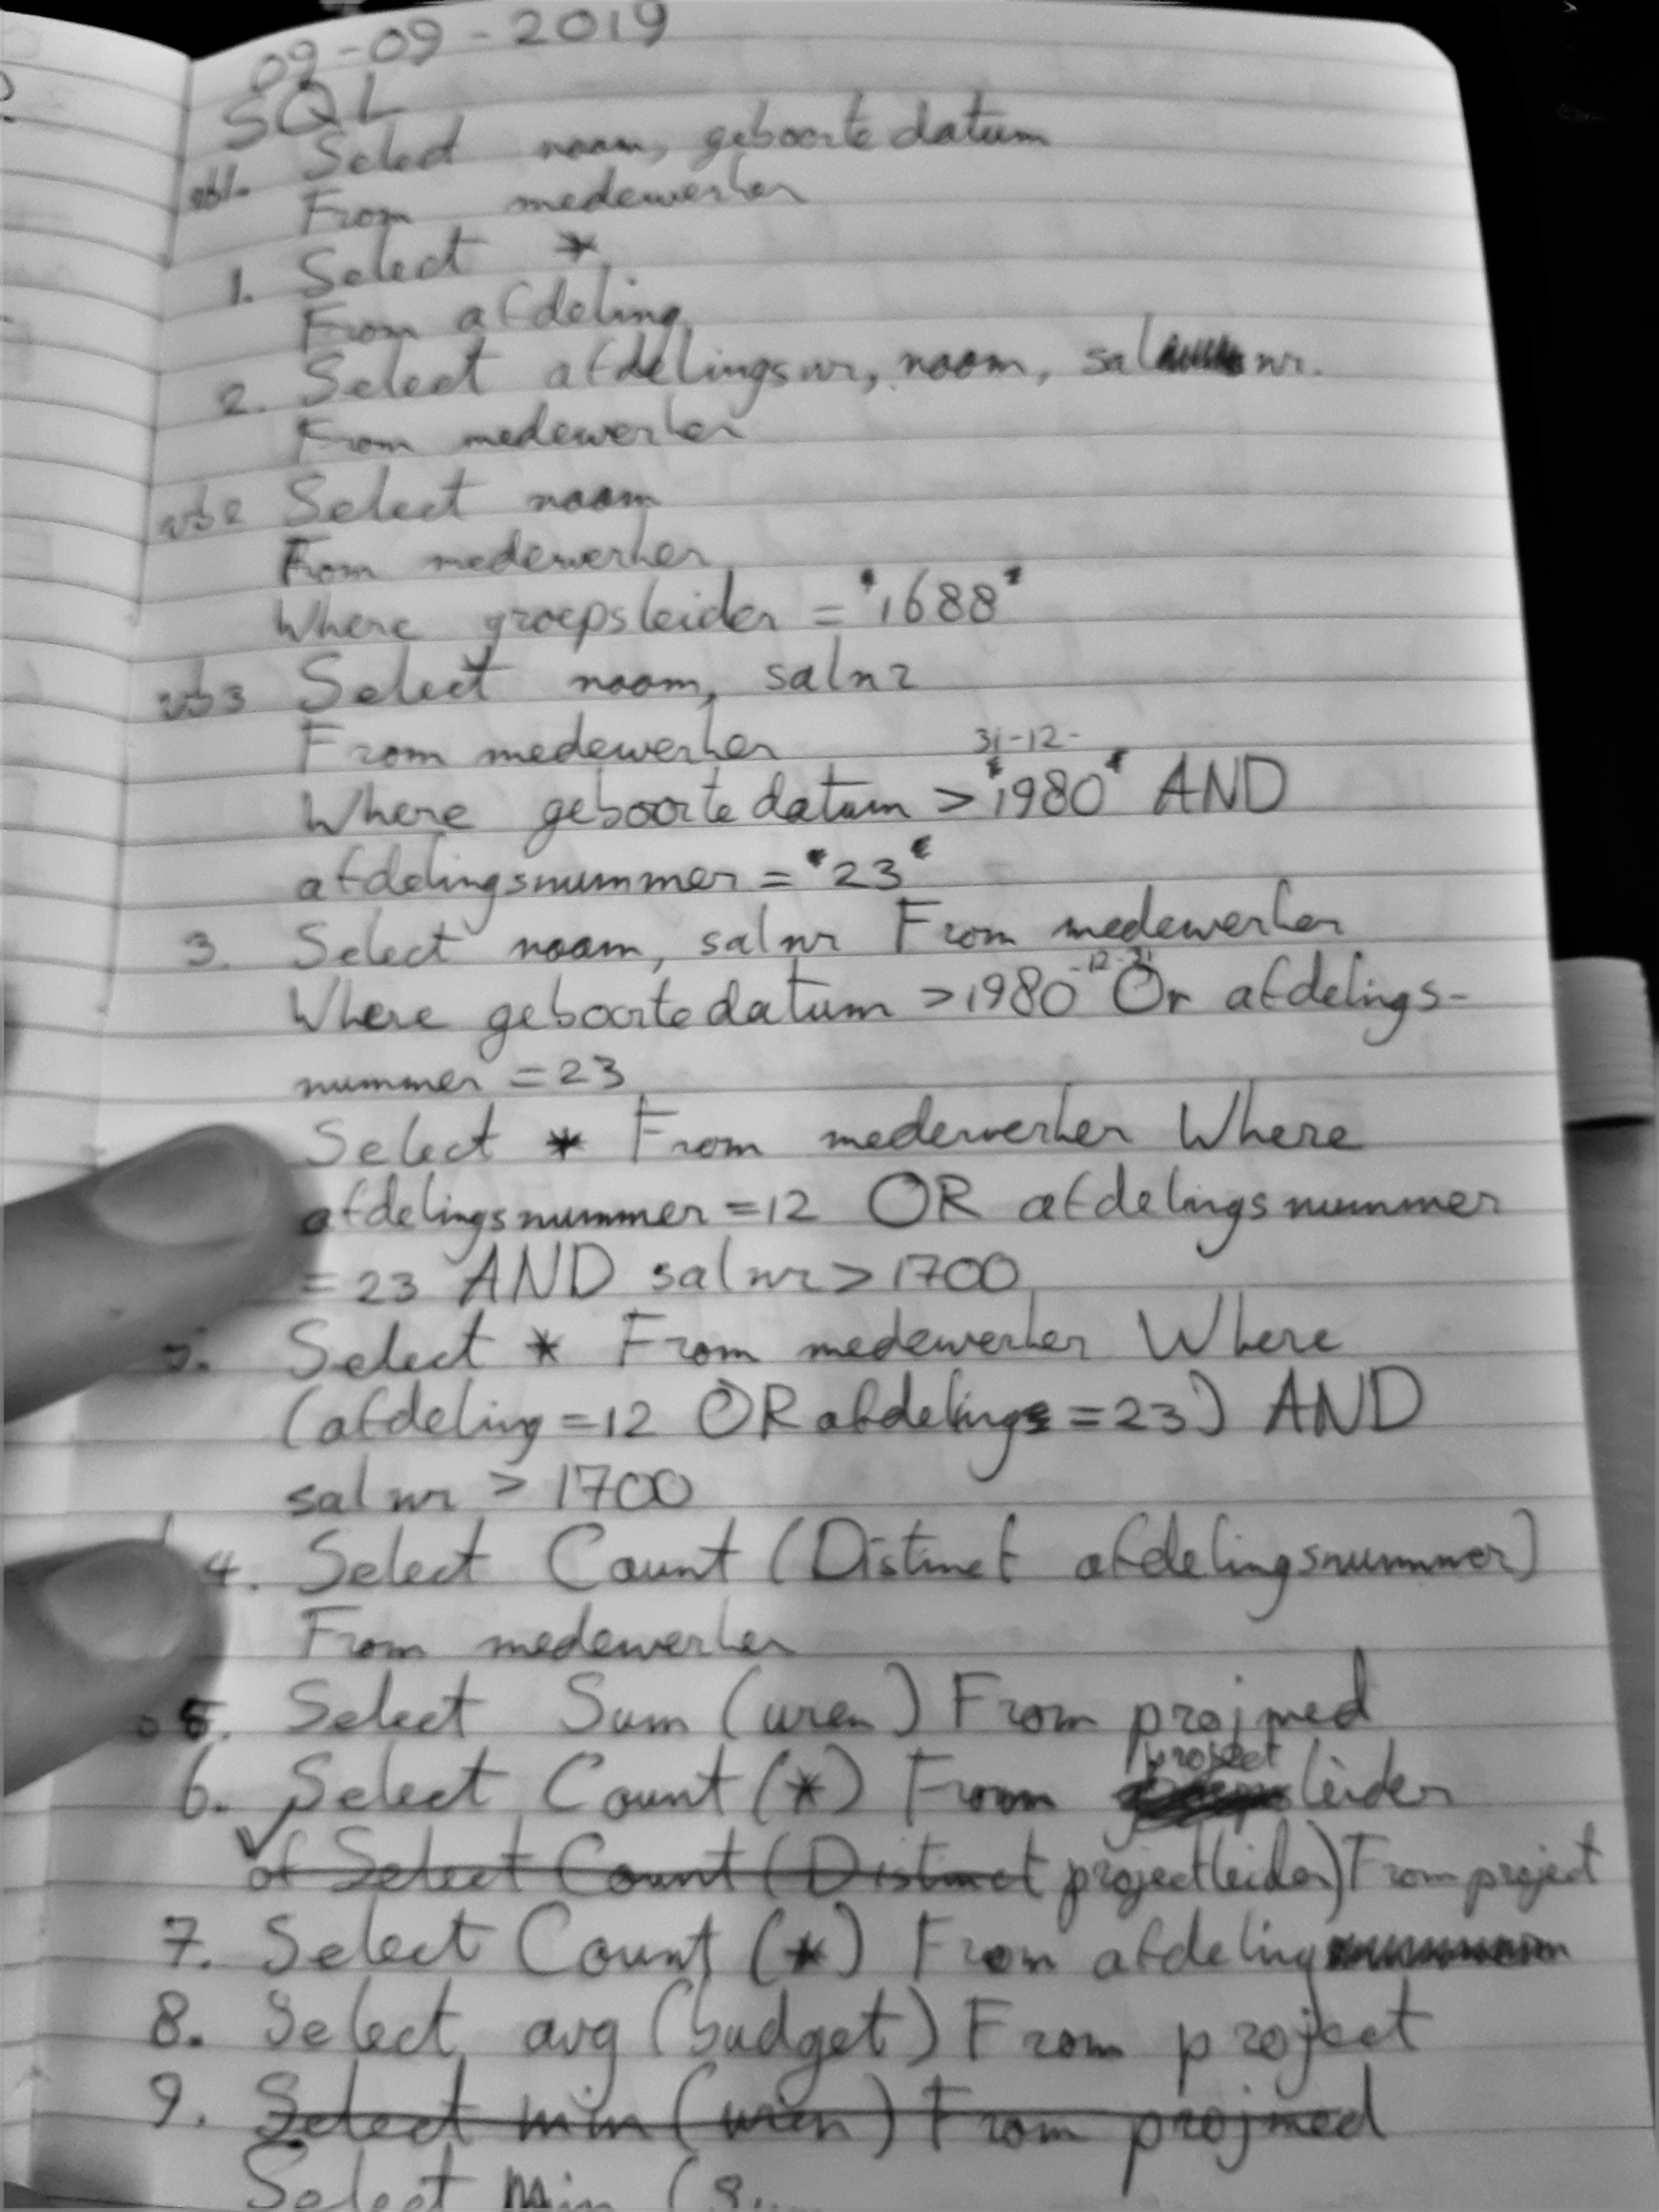 09-09-2019
SQL
vb1. Select naam, geboortedatum
From medewerker
1. Select *
From afdeling
2. Select afdelingsnr, naam, salnr.
From medewerker
vb2 Select naam
From medewerker
Where groepsleider = '1688'
vb3 Select naam, salnr
From medewerker
31-12-
Where geboortedatum > '1980' AND
afdelingsnummer = '23'
3. Select naam, salnr From medewerker
Where geboortedatum > 1980-12-31 Or afdelings-
nummer = 23
Select * From medewerker Where
afdelingsnummer = 12 OR afdelingsnummer
= 23 AND salnr > 1700
Select * From medewerker Where
(afdeling = 12 OR afdeling = 23) AND
salnr > 1700
4. Select Count (Distinct afdelingsnummer)
From medewerker
5. Select Sum (uren) From projmed
project
6. Select Count (*) From leider
of Select Count (Distinct projectleider) From project
7. Select Count (*) From afdeling
8. Select avg (budget) From project
9. Select min (uren) From projmed
Select Min (Sum